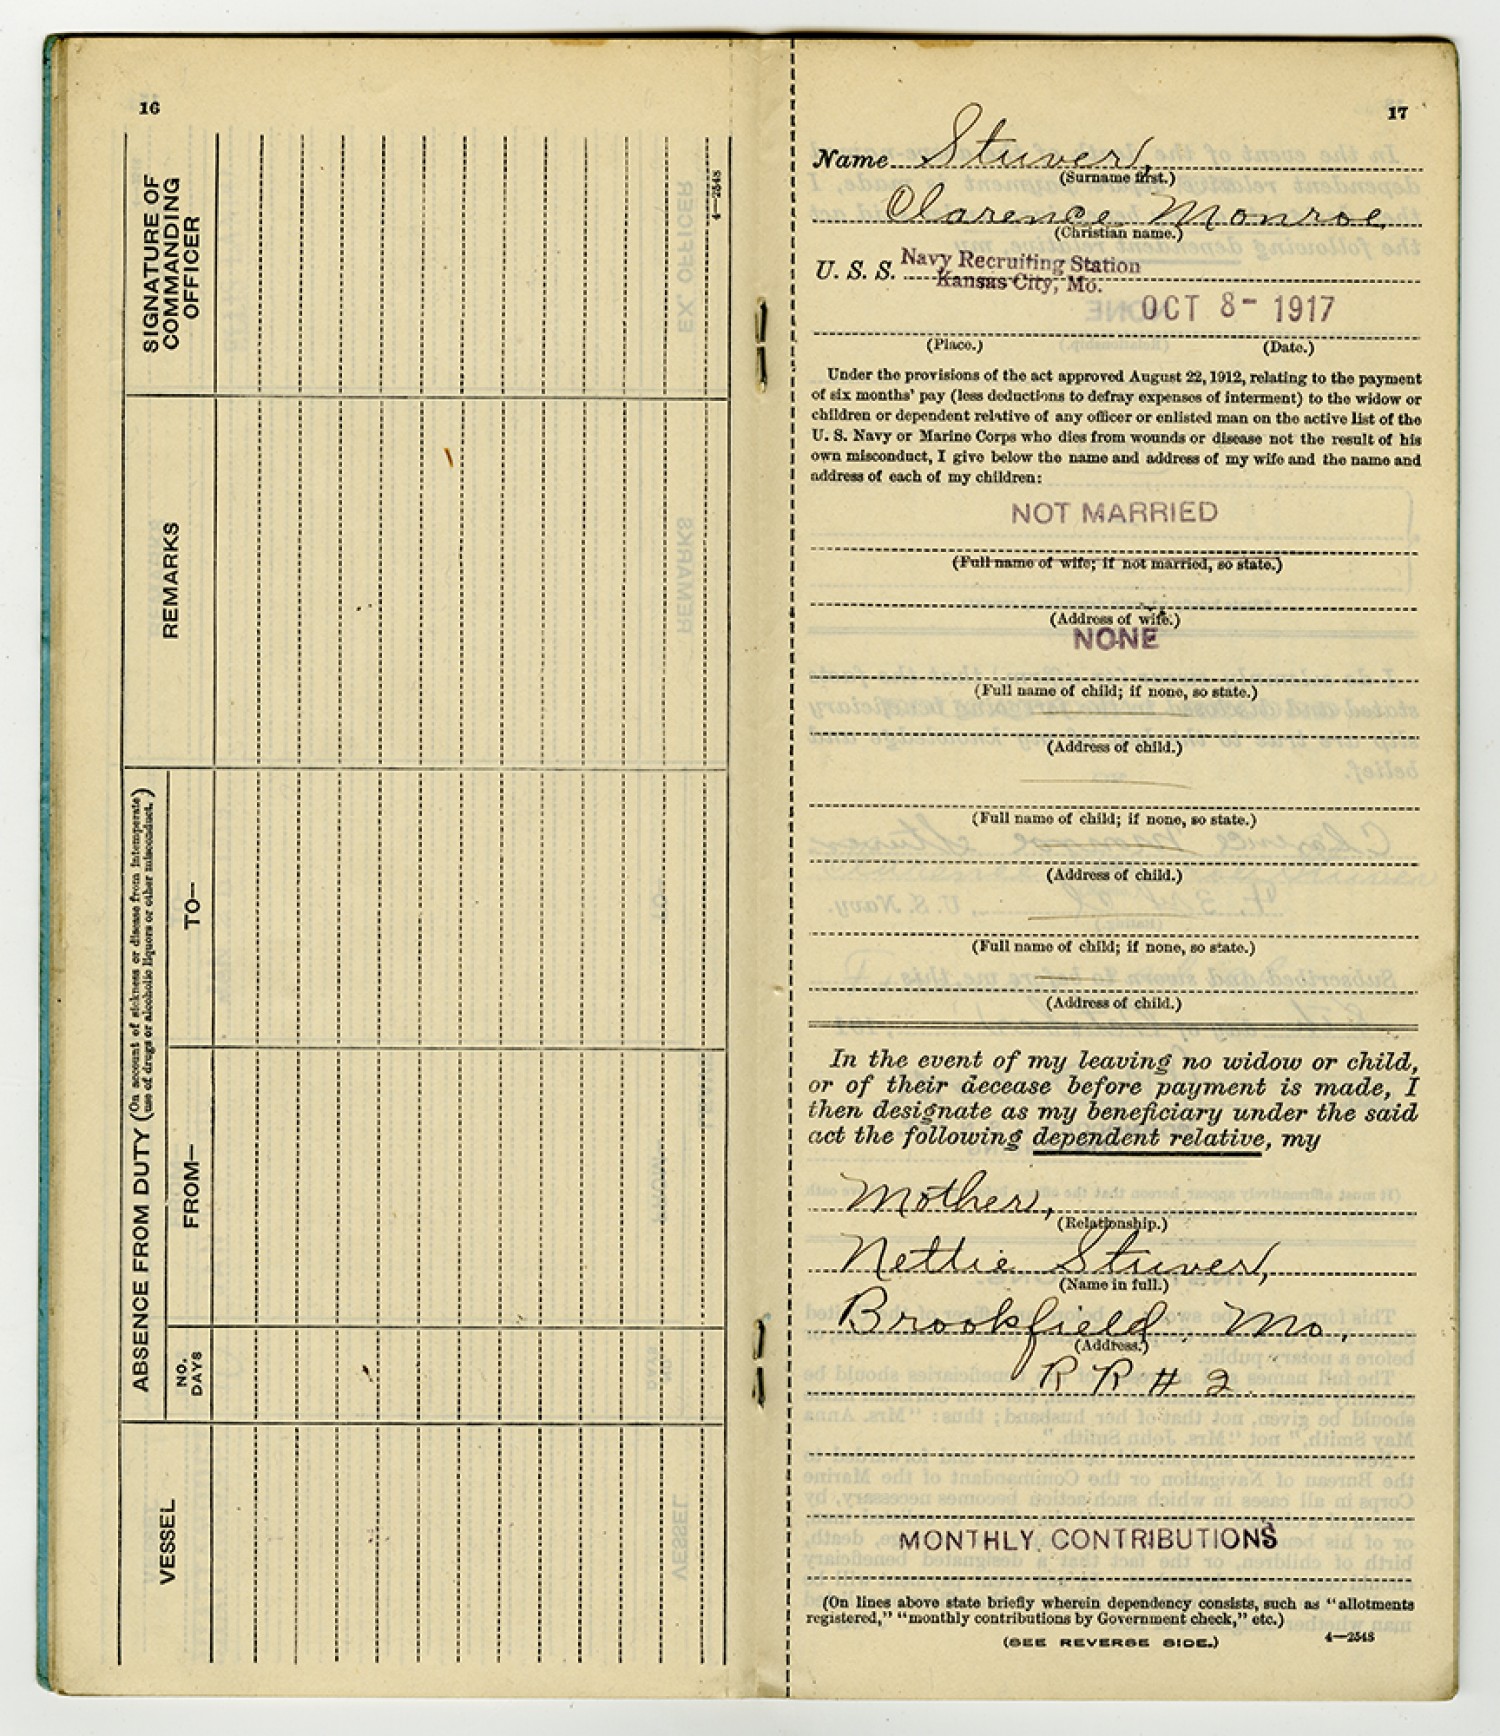 16
SIGNATURE OF
COMMANDING
OFFICER
REMARKS
ABSENCE FROM DUTY (On account of sickness or disease from intemperate
use of drugs or alcoholic liquors or other misconduct.)
TO—
FROM—
NO.
DAYS
VESSEL
4—2548
17
Name Stuver,
(Surname first.)
Clarence Monroe,
(Christian name.)
U. S. S. Navy Recruiting Station
Kansas City, Mo.
OCT 8- 1917
(Place.) (Date.)
Under the provisions of the act approved August 22, 1912, relating to the payment
of six months' pay (less deductions to defray expenses of interment) to the widow or
children or dependent relative of any officer or enlisted man on the active list of the
U. S. Navy or Marine Corps who dies from wounds or disease not the result of his
own misconduct, I give below the name and address of my wife and the name and
address of each of my children:
NOT MARRIED
(Full name of wife; if not married, so state.)
(Address of wife.)
NONE
(Full name of child; if none, so state.)
(Address of child.)
(Full name of child; if none, so state.)
(Address of child.)
(Full name of child; if none, so state.)
(Address of child.)
In the event of my leaving no widow or child,
or of their decease before payment is made, I
then designate as my beneficiary under the said
act the following dependent relative, my
Mother,
(Relationship.)
Nettie Stuver,
(Name in full.)
Brookfield, Mo.
(Address.)
R R # 2
MONTHLY CONTRIBUTIONS
(On lines above state briefly wherein dependency consists, such as "allotments
registered," "monthly contributions by Government check," etc.)
(SEE REVERSE SIDE.)
4—2548